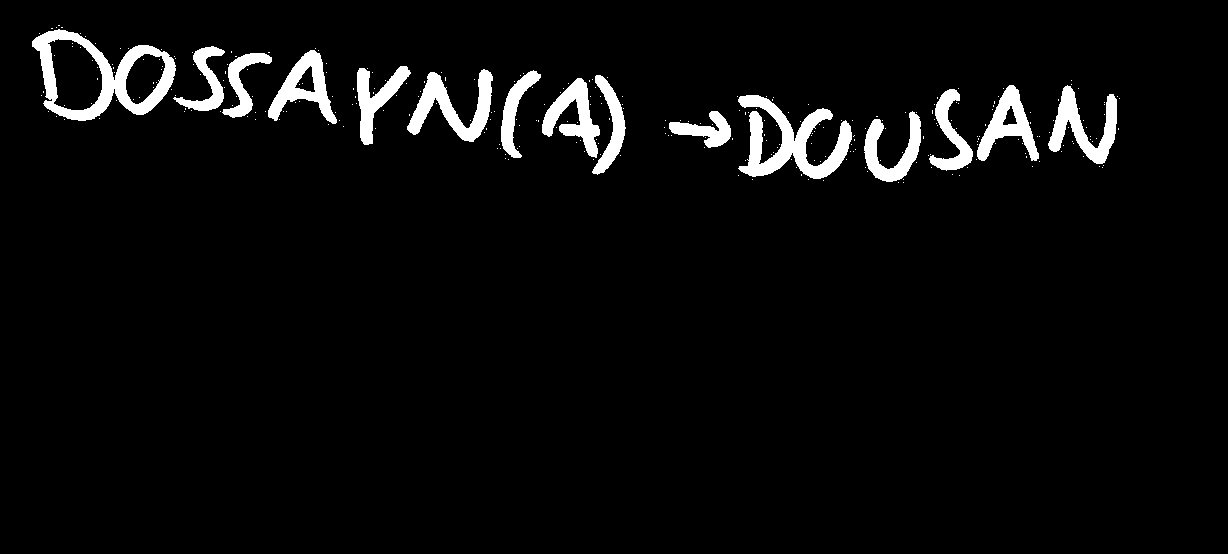 DOSSAYN(A) → DOUSAN